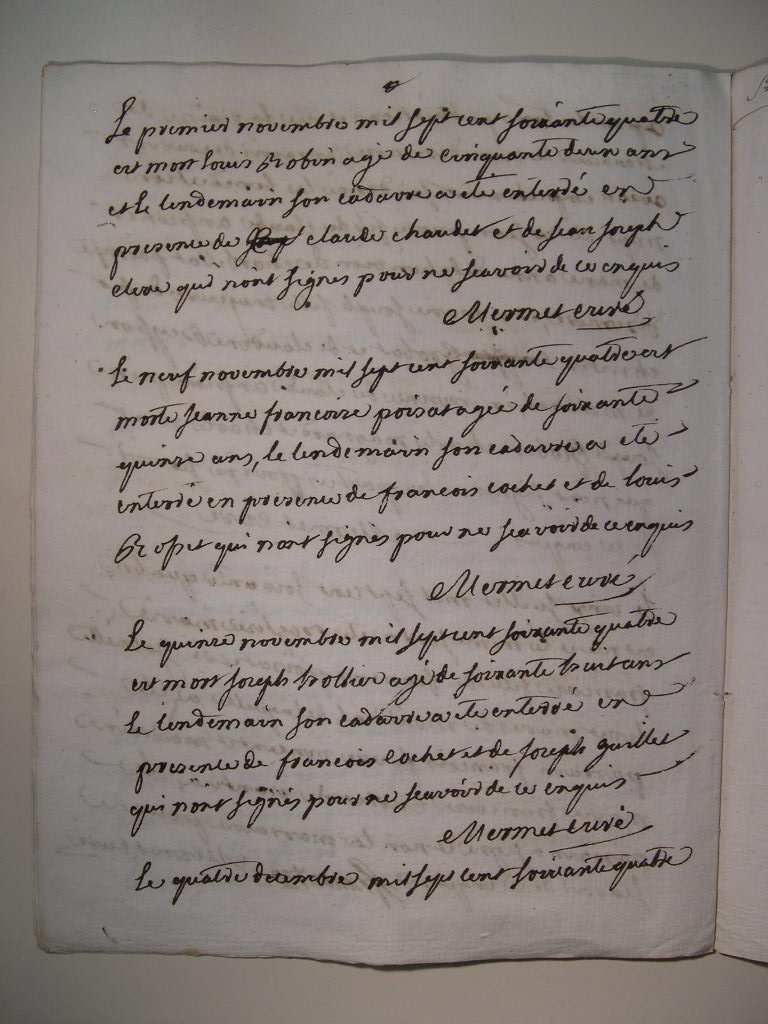 Le premier novembre mil sept cent soixante quatre
est mort louis Robin agé de cinquante deux ans
et le lendemain son cadavre a ete enterré en
presence de claude chaudet et de jean joseph
clere qui n'ont signés pour ne scavoir de ce enquis
Mermet curé
Le neuf novembre mil sept cent soixante quatre est
morte jeanne francoise poisat agée de soixante
quinze ans, le lendemain son cadavre a ete
enterré en presence de francois cochet et de louis
qui n'ont signés pour ne scavoir de ce enquis
Mermet curé
Le quinze novembre mil sept cent soixante quatre
est mort joseph agé de soixante huit ans
le lendemain son cadavre a ete enterré en
presence de francois cochet et de joseph guillet
qui n'ont signés pour ne scavoir de ce enquis
Mermet curé
Le quatre decembre mil sept cent soixante quatre